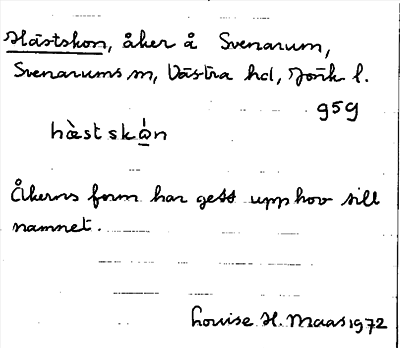 Hästskon, åker å Svenarum,
Svenarums sn, Västra hd, Jönk l.
959
hàstskó̠n
Åkerns form har gett upphov till
namnet.
Louise H. Maas 1972